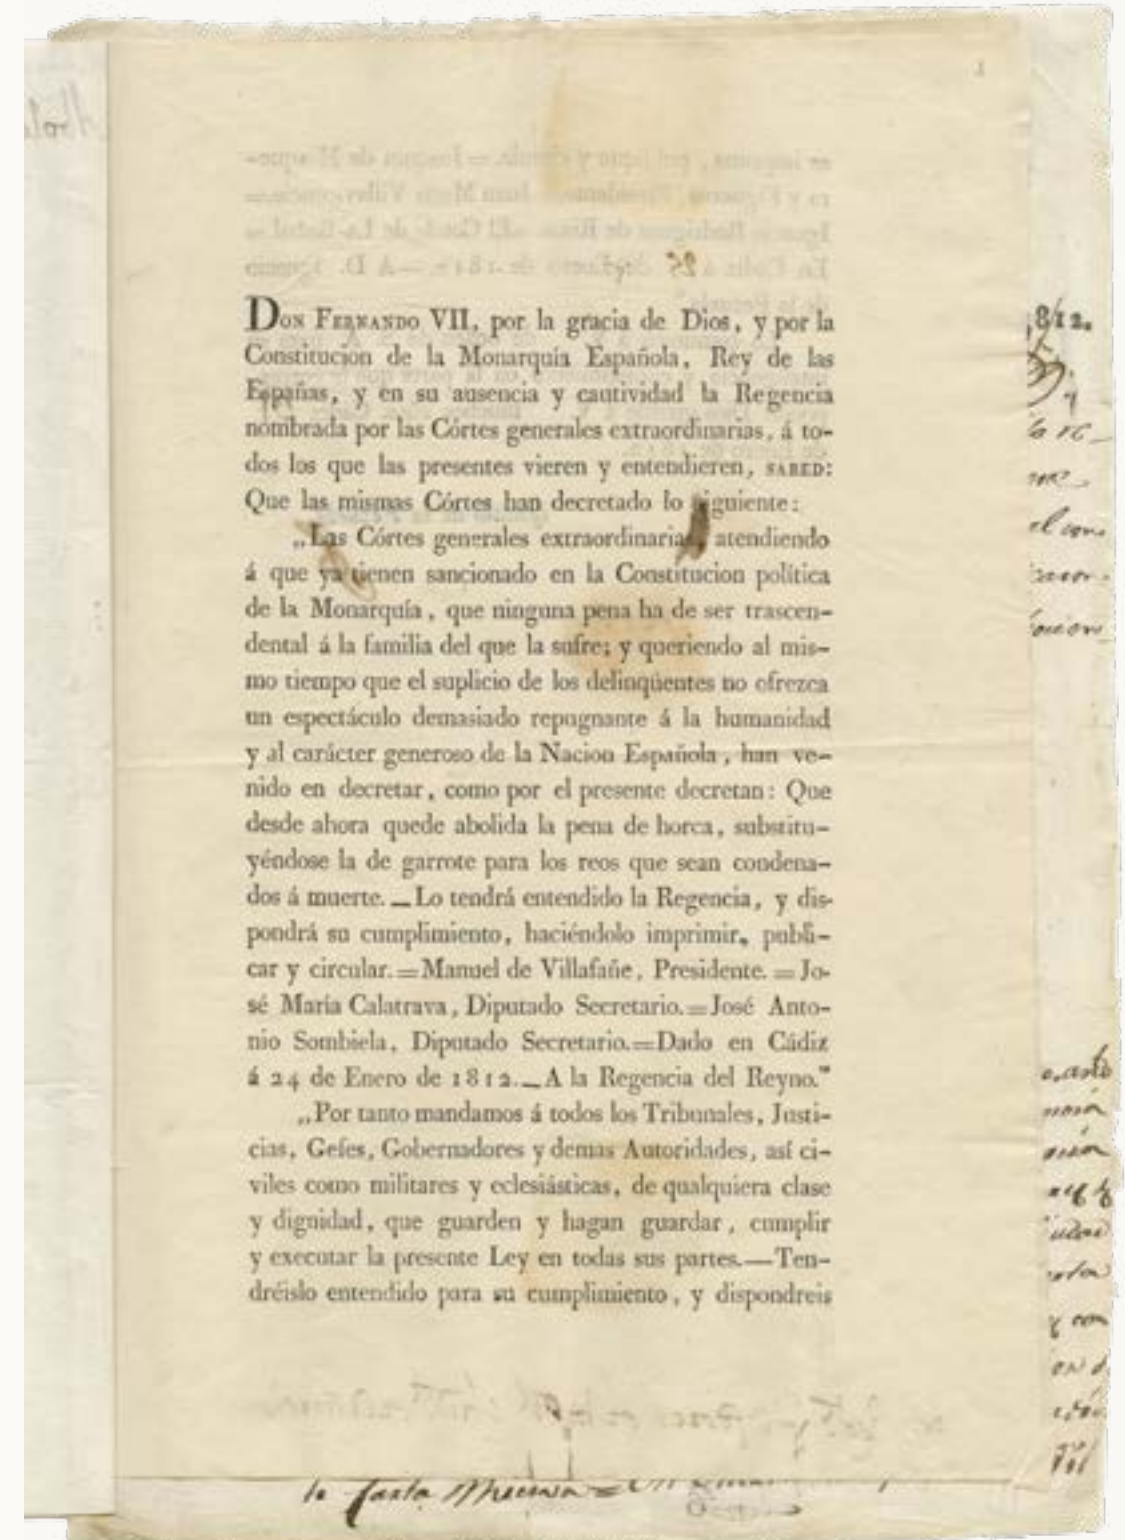 1
DON FERNANDO VII, por la gracia de Dios, y por la
Constitucion de la Monarquía Española, Rey de las
Españas, y en su ausencia y cautividad la Regencia
nombrada por las Córtes generales extraordinarias, á to-
dos los que las presentes vieren y entendieren, SABED:
Que las mismas Córtes han decretado lo siguiente:
„Las Córtes generales extraordinarias, atendiendo
á que ya tienen sancionado en la Constitucion política
de la Monarquía, que ninguna pena ha de ser trascen-
dental á la familia del que la sufre; y queriendo al mis-
mo tiempo que el suplicio de los delinqüentes no ofrezca
un espectáculo demasiado repugnante á la humanidad
y al carácter generoso de la Nacion Española, han ve-
nido en decretar, como por el presente decretan: Que
desde ahora quede abolida la pena de horca, substitu-
yéndose la de garrote para los reos que sean condena-
dos á muerte. — Lo tendrá entendido la Regencia, y dis-
pondrá su cumplimiento, haciéndolo imprimir, publi-
car y circular.=Manuel de Villafañe, Presidente.=Jo-
sé María Calatrava, Diputado Secretario.=José Anto-
nio Sombiela, Diputado Secretario.=Dado en Cádiz
á 24 de Enero de 1812. — A la Regencia del Reyno."
„Por tanto mandamos á todos los Tribunales, Justi-
cias, Gefes, Gobernadores y demas Autoridades, así ci-
viles como militares y eclesiásticas, de qualquiera clase
y dignidad, que guarden y hagan guardar, cumplir
y executar la presente Ley en todas sus partes.—Ten-
dréislo entendido para su cumplimiento, y dispondreis